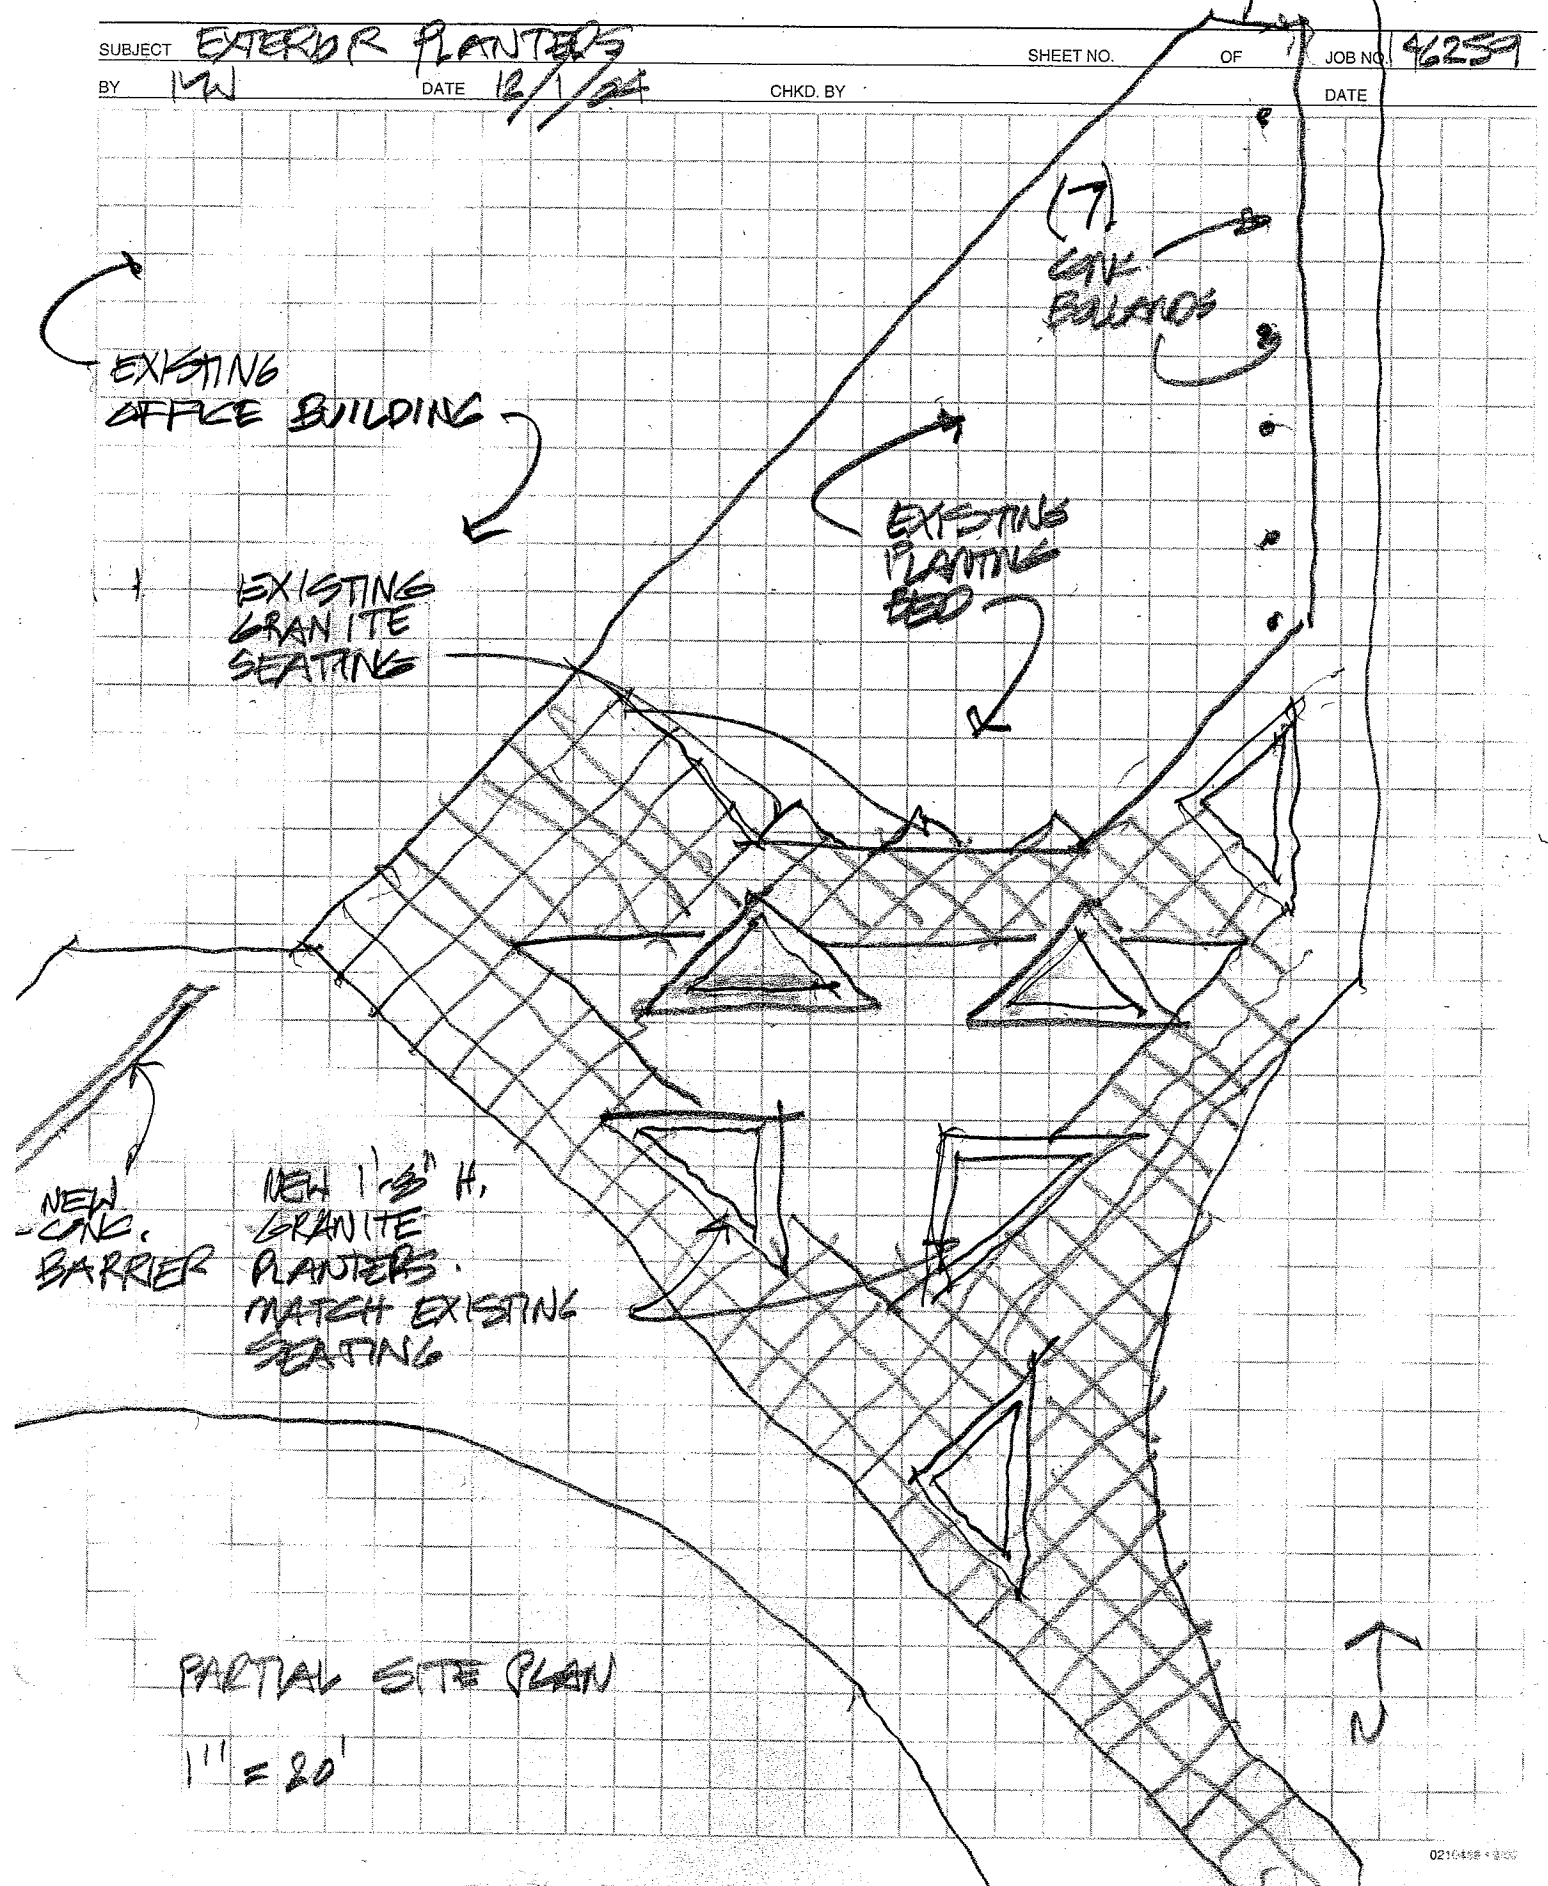 SUBJECT EXTERIOR PLANTERS SHEET NO. OF JOB NO. 46259
BY DATE 12/1/24 CHKD. BY DATE
(7)
CONC
BOLLARDS
EXISTING
OFFICE BUILDING
EXISTING
PLANTING
BED
EXISTING
GRANITE
SEATING
NEW
CONC.
BARRIER
NEW 1'-8" H.
GRANITE
PLANTERS.
MATCH EXISTING
SEATING
PARTIAL SITE PLAN
1" = 20'
N